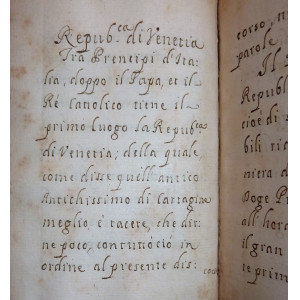 Repub.ca di Venetia
Tra Prencipi d'Ita
lia, doppo il Papa, et il
Rè Catolico tiene il
primo luogo la Repub.ca
di Venetia; della quale,
come disse quell'antico
Antichissimo di Cartagine
meglio, è tacere, che dir
ne poco, contutociò in
ordine al presente dis:
corso, n
parole
Il
Republ
cioè di s
bili ric
miera d
Doge Pr
all'hor
il gran
te prim